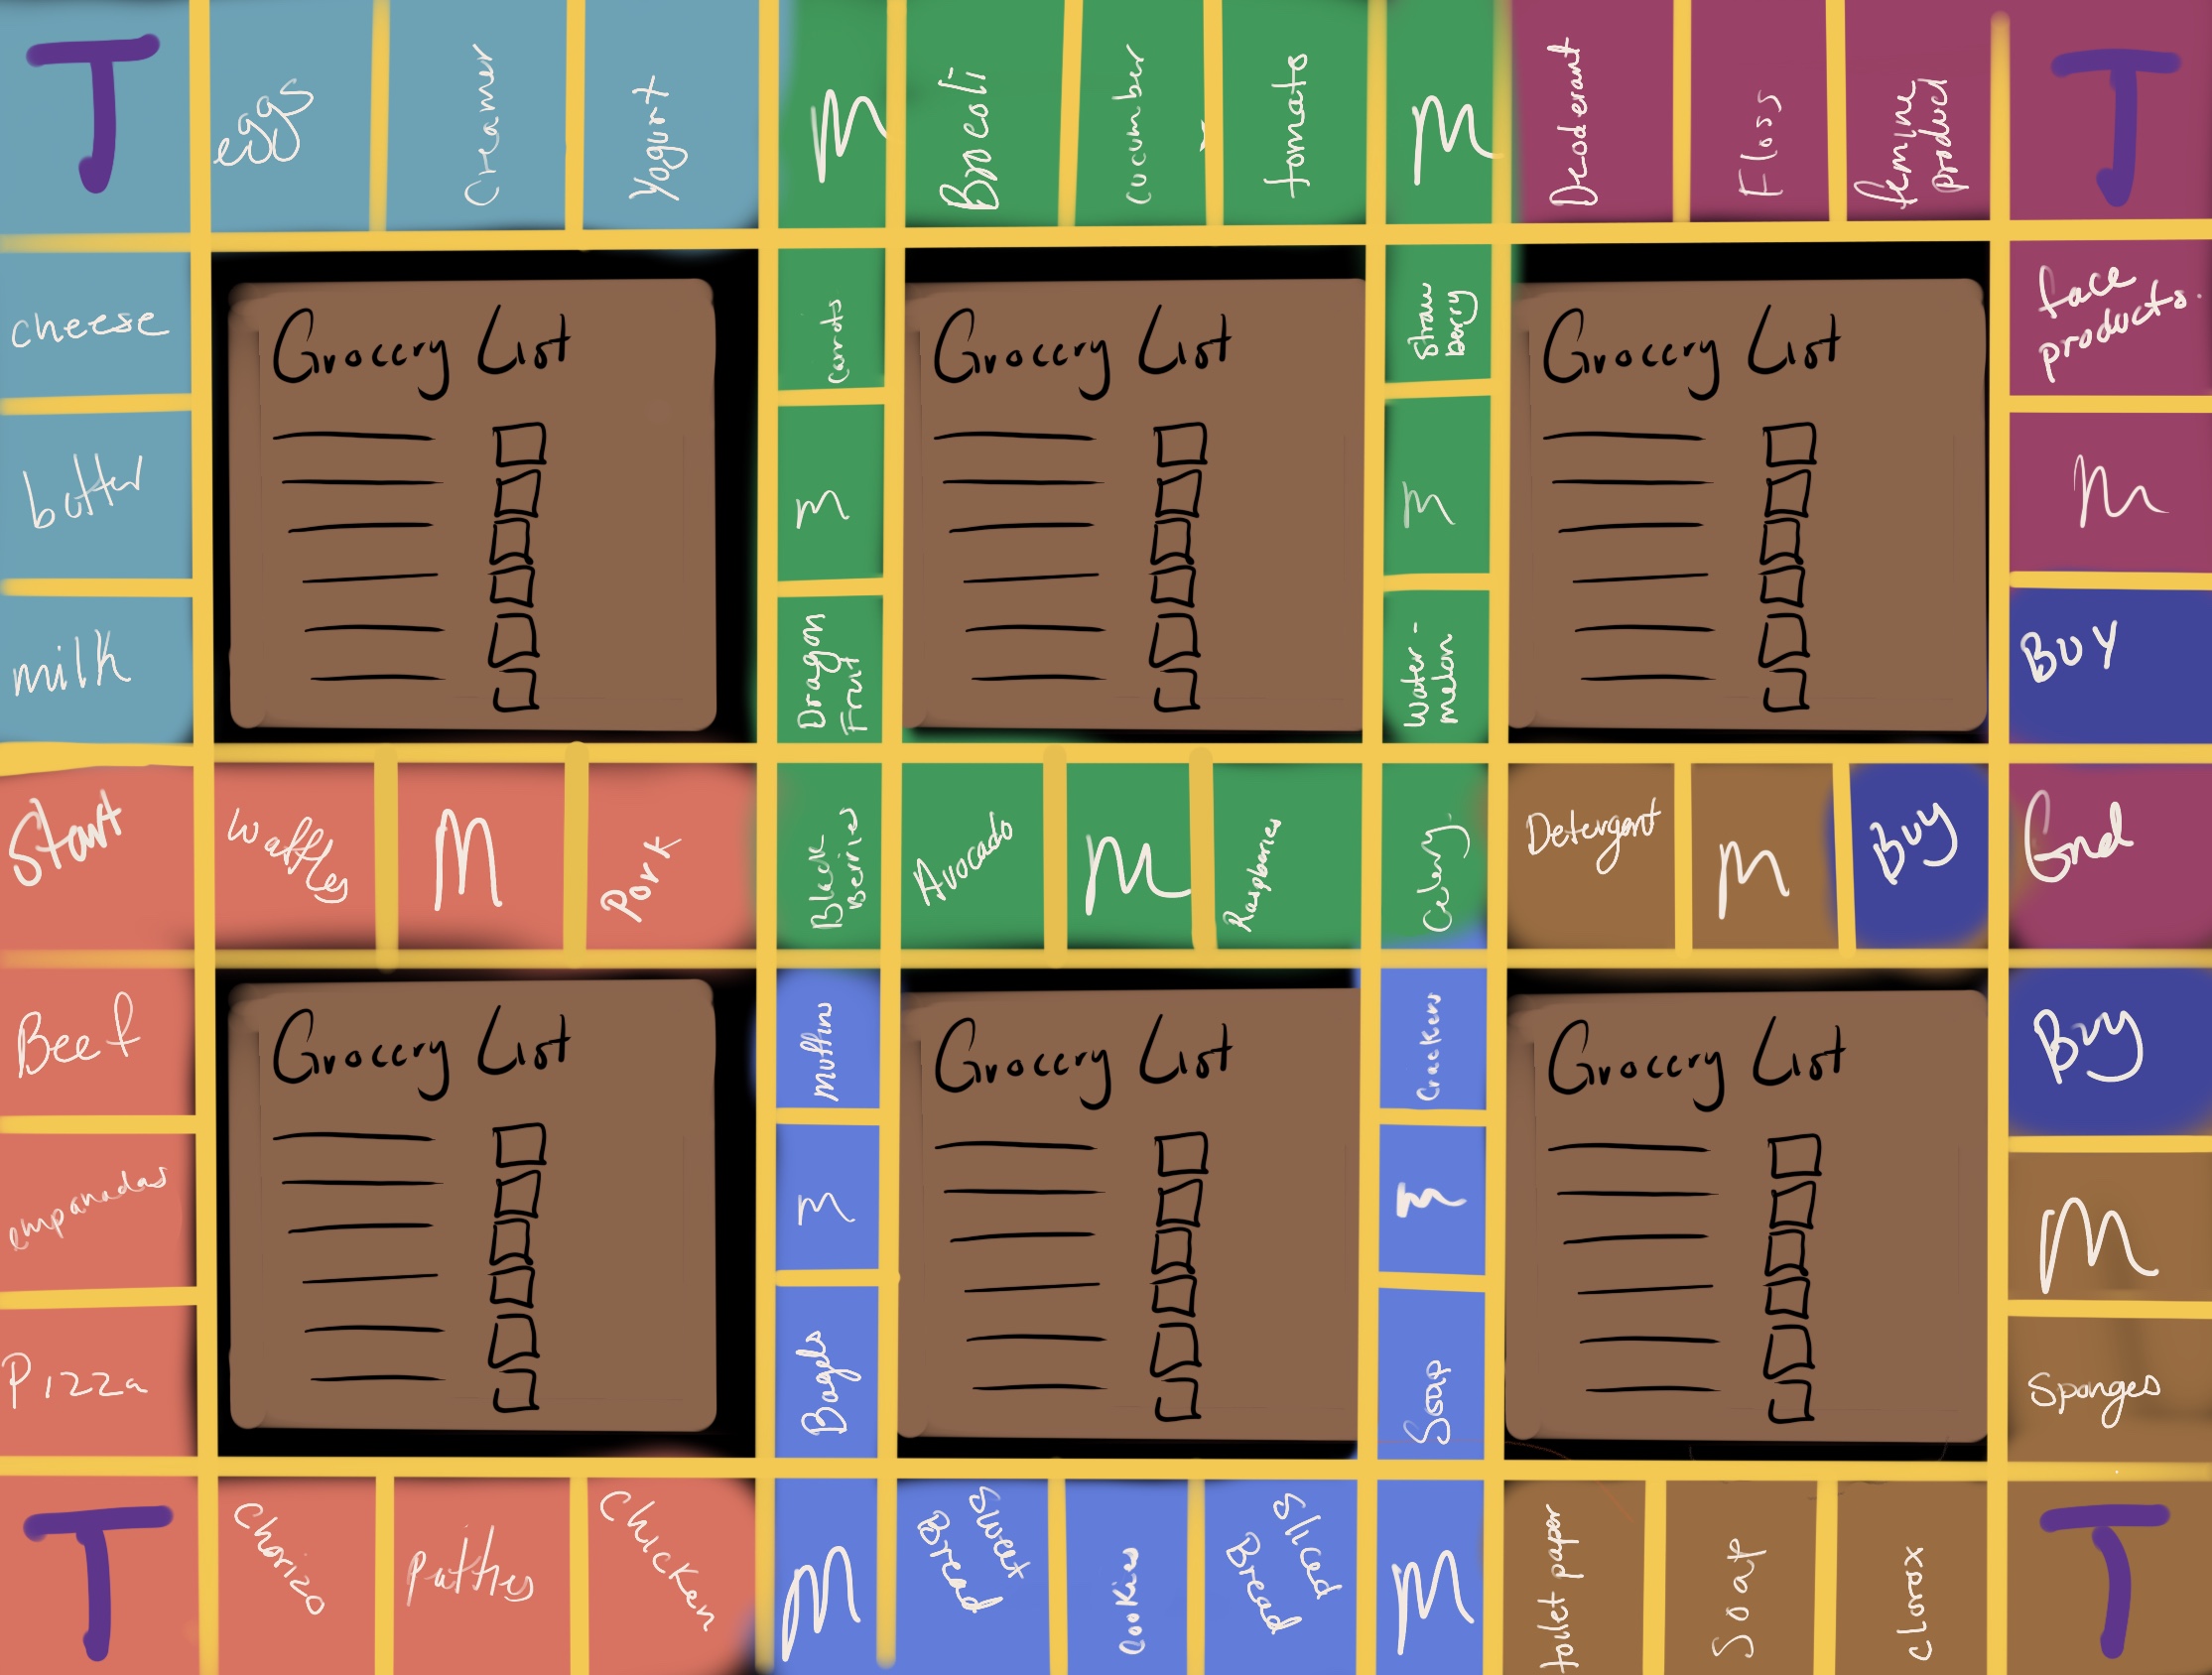 T
eggs
Creamer
Yogurt
M
Brcoli
Cucumber
tomato
M
Decoderant
Floss
femine
product
T
cheese
Grocery List
carrots
Grocery List
Straw
berry
Grocery List
face
products.
butter
m
m
m
milk
Dragon
Fruit
Water-
melon
BUY
Start
Waffles
M
Pork
Black
Berries
Avocado
M
Raspberries
Celery
Detergent
M
Buy
End
Beef
Grocery List
Muffins
Grocery List
Crackers
Grocery List
Buy
empanadas
m
m
M
Pizza
Bagels
Soap
Sponges
T
Chorizo
Patties
Chicken
M
Sweet
Bread
Cookies
Sliced
Bread
M
toilet paper
Soap
clorox
T